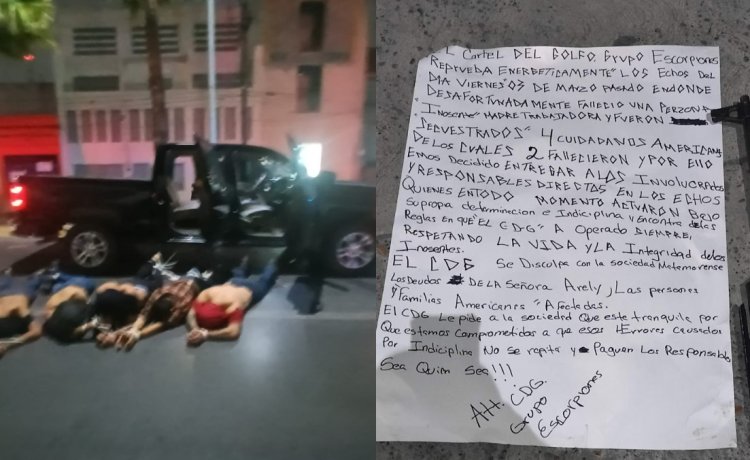 El Cartel DEL GOLFO. GRUPO Escorpiones
REPRUEBA ENERGETICAMENTE" LOS Echos DEL
DIA VIERNES "03 DE MARZO PASADO ENDONDE
DESAFORTUNADAMENTE FALLECIO UNA PERZONA
"Inosente" MADRE TRABAJADORA Y FVERON
SECUESTRADOS" 4 CUIDADANOS AMERICANOS
DE LOS CUALES 2 FALLECIERON Y POR ELLO
EMOS DECIDIDO ENTREGAR A LOS INVOLUCRADOS
Y RESPONSABLES DIRECTOS EN LOS ECHOS
QUIENES EN TODO MOMENTO ACTVARON BAJO
Su propa determinacion e Indiciplina y Encontra de las
Reglas EN QUE "EL CDG" A Operado SIEMPRE,
RESPETANDO LA VIDA Y LA Integridad de los
Inosentes.
EL CDG Se Disculpa con la sociedad Matamorense
Los Deudos DE LA Señora Arely, y Las personas
y Familias Americanes "Afectadas.
El CDG Le pide a la sociedad Que este tranquila por
Que estamos Comprometidos a que esos "Errores causados
Por Indiciplina No se repita y Paguen Los Responsables
Sea Quim Sea!!!
Att. CDG.
Grupo
Escorpiones